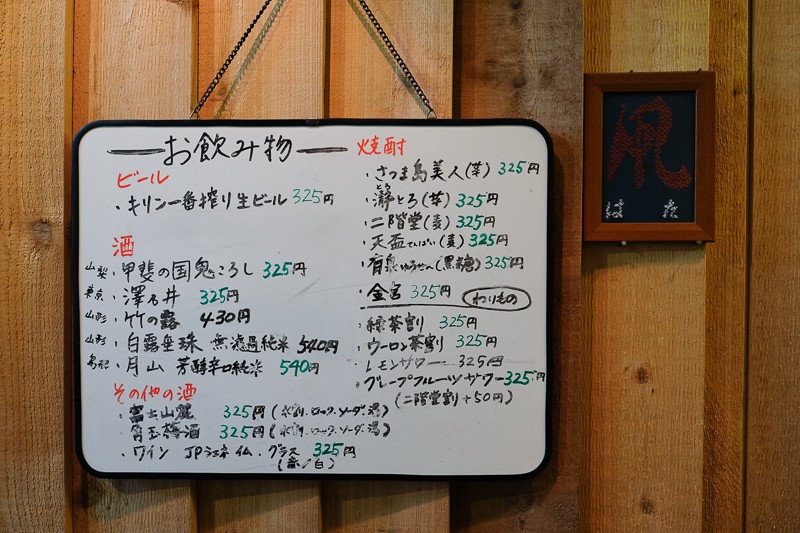 お飲み物
ビール
・キリン一番搾り生ビール 325円
酒
山梨・甲斐の国鬼ころし 325円
東京・澤乃井 325円
山形・竹の露 430円
山形・白露垂珠 無濾過純米 540円
島根・月山 芳醇辛口純米 540円
その他の酒
・富士山麓 325円(水割、ロック、ソーダ、湯)
・角玉梅酒 325円(水割、ロック、ソーダ、湯)
・ワイン JPシェネ 仏・グラス 325円
(赤/白)
焼酎
・さつま島美人(芋) 325円
・灔とろ(芋) 325円
・二階堂(麦) 325円
・天盃てんぱい(麦) 325円
・有泉ゆうせん(黒糖) 325円
・金宮 325円 わりもの
・緑茶割 325円
・ウーロン茶割 325円
・レモンサワー 325円
・グレープフルーツサワー 325円
(二階堂割+50円)
凧
はた